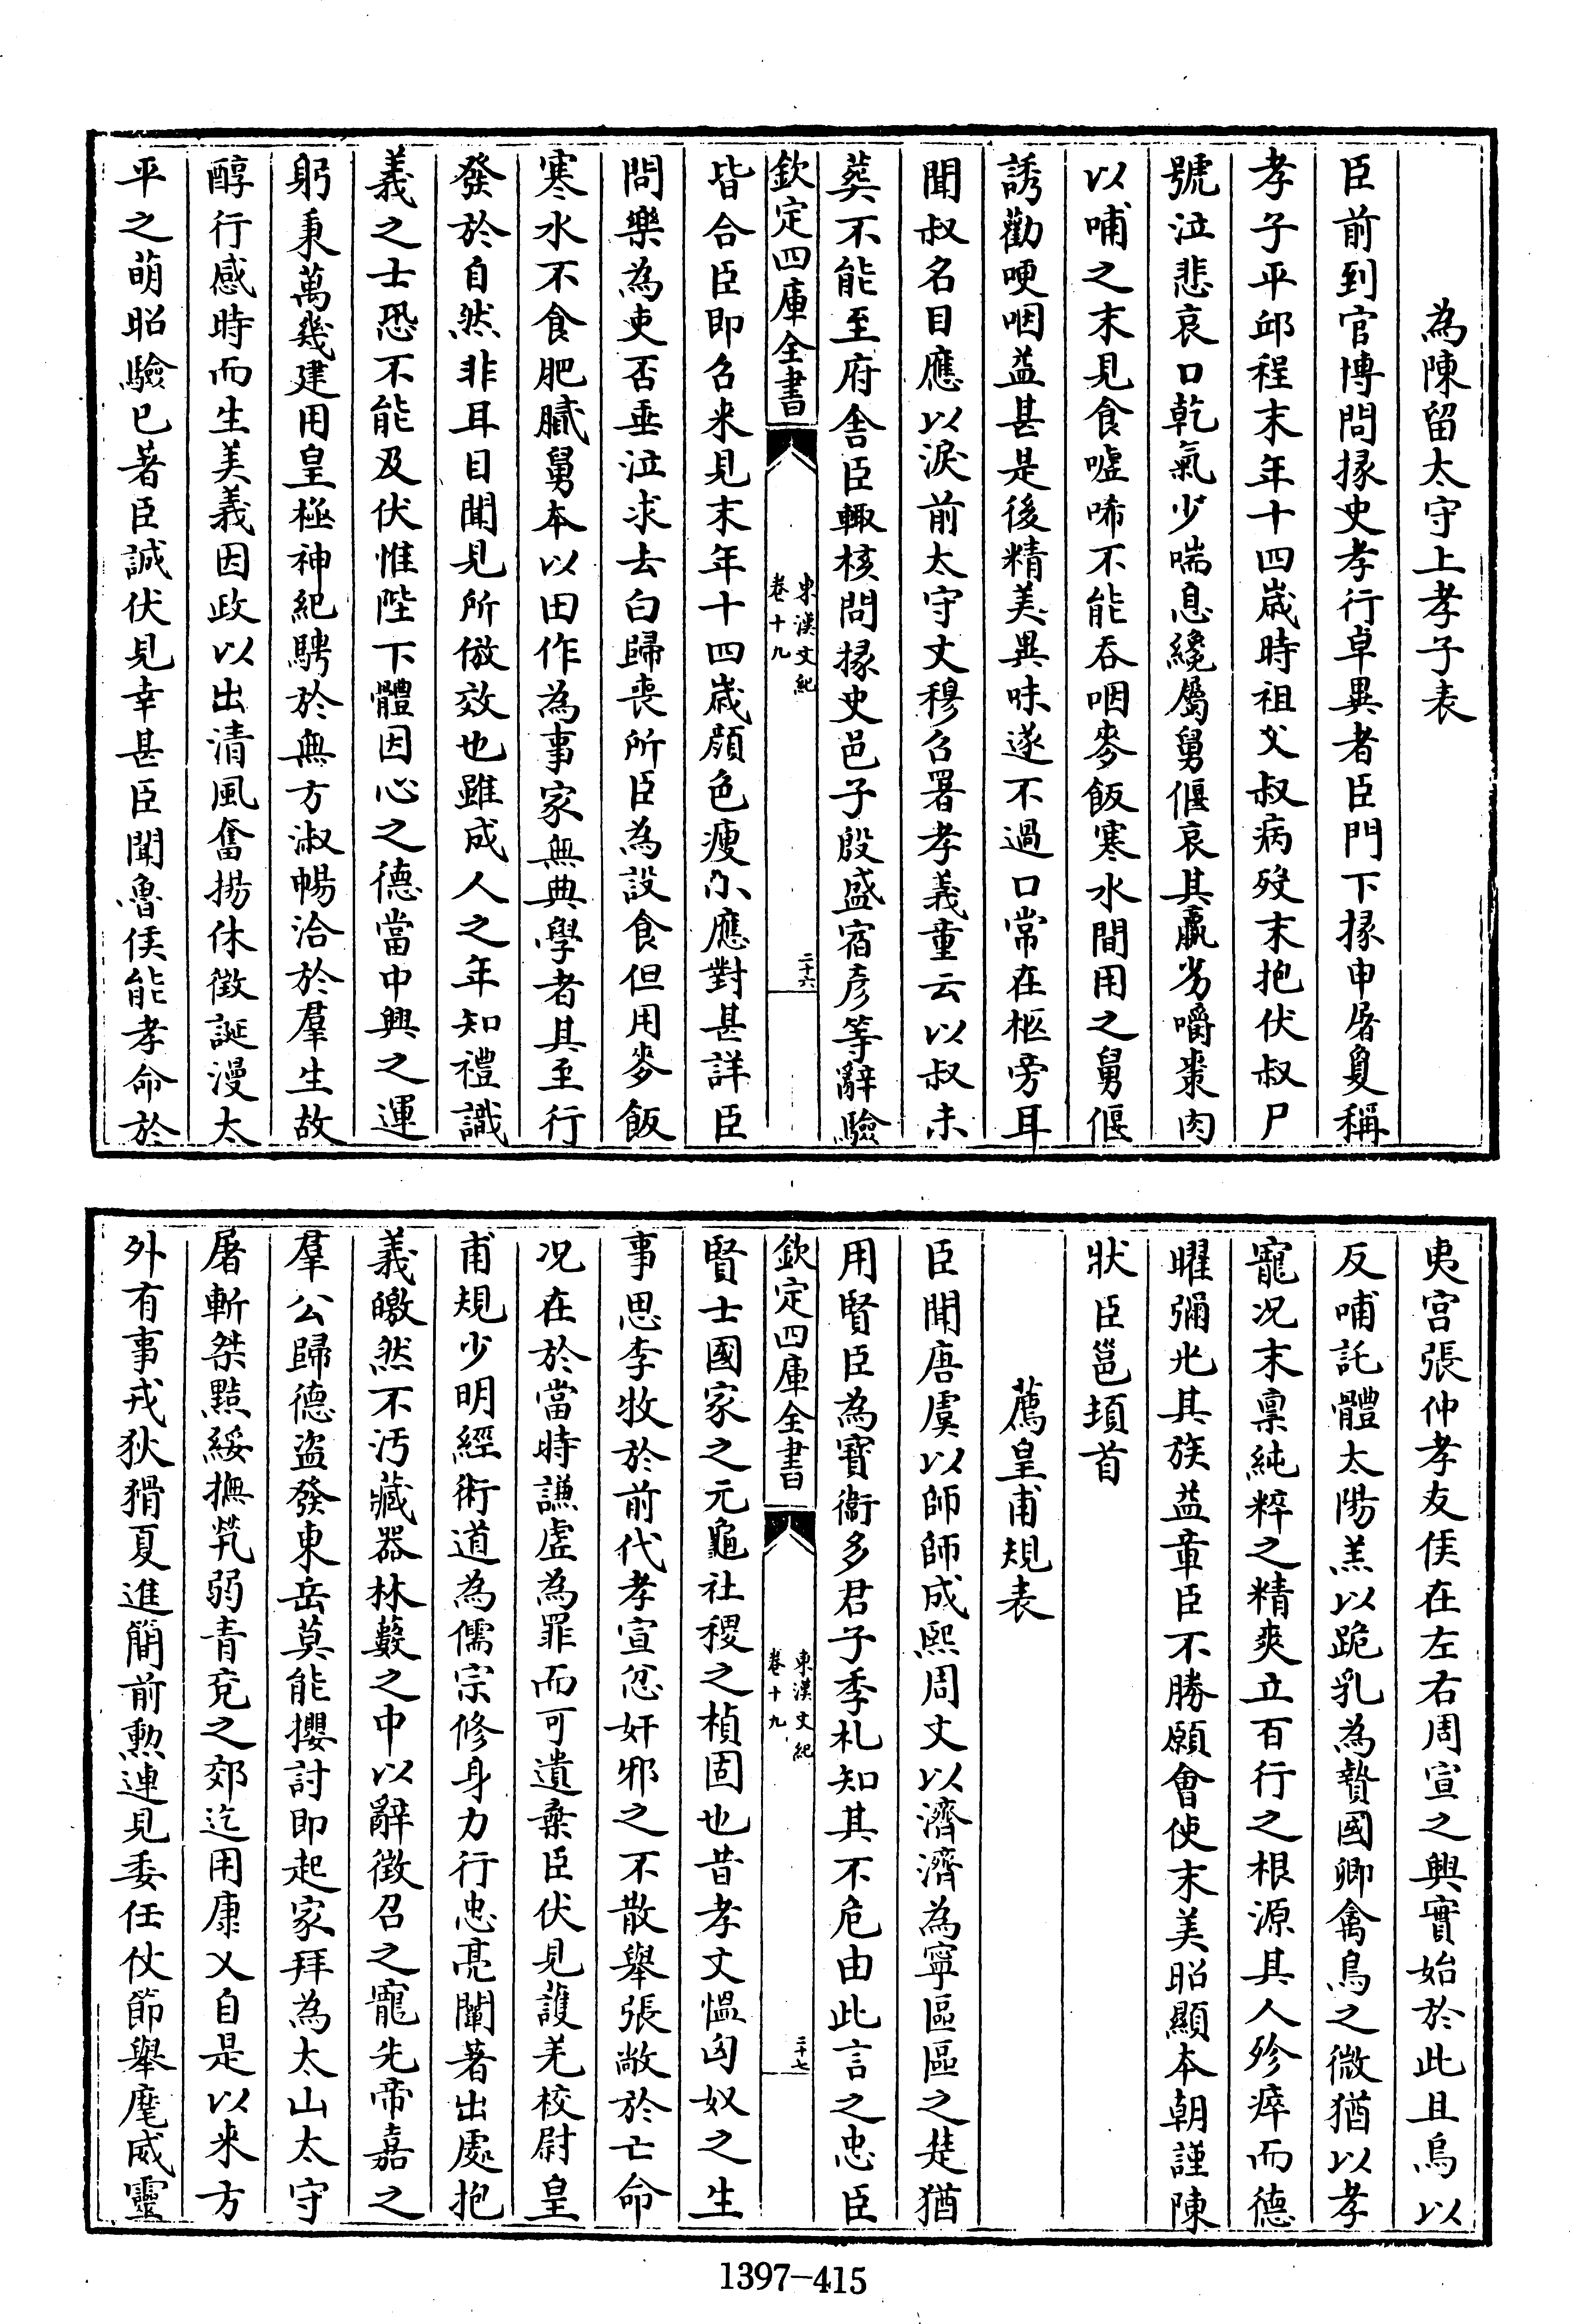 為陳留太守上孝子表
臣前到官博問掾史孝行卓異者臣門下掾申屠夐稱
孝子平邱程末年十四歲時祖父叔病歿末抱伏叔尸
號泣悲哀口乾氣少喘息纔屬舅偃哀其羸劣嚼棗肉
以哺之末見食噓唏不能吞咽麥飯寒水間用之舅偃
誘勸哽咽益甚是後精美異味遂不過口常在柩旁耳
聞叔名目應以淚前太守文穆召署孝義童云以叔未
葬不能至府舍臣輙核問掾史邑子殷盛宿彥等辭驗
欽定四庫全書
東漢文紀
卷十九
二十六
皆合臣即召来見末年十四歲顔色瘦小應對甚詳臣
問樂為吏否垂泣求去白歸喪所臣為設食但用麥飯
寒水不食肥膩舅本以田作為事家無典學者其至行
發於自然非耳目聞見所倣效也雖成人之年知禮識
義之士恐不能及伏惟陛下體因心之德當中興之運
躬秉萬幾建用皇極神紀騁於無方淑暢洽於羣生故
醇行感時而生美義因政以出清風奮揚休徵誕漫太
平之萌昭驗已著臣誠伏見幸甚臣聞魯侯能孝命於
夷宫張仲孝友侯在左右周宣之興實始於此且烏以
反哺託體太陽羔以跪乳為贄國卿禽鳥之微猶以孝
寵况末禀純粹之精爽立百行之根源其人殄瘁而德
曜彌光其族益章臣不勝願會使末美昭顯本朝謹陳
狀臣邕頓首
薦皇甫規表
臣聞唐虞以師師成熙周文以濟濟為寧區區之楚猶
用賢臣為寳衞多君子季札知其不危由此言之忠臣
欽定四庫全書
東漢文紀
卷十九
二十七
賢士國家之元龜社稷之楨固也昔孝文愠匈奴之生
事思李牧於前代孝宣忿奸邪之不散舉張敞於亡命
况在於當時謙虛為罪而可遺棄臣伏見護羌校尉皇
甫規少明經術道為儒宗修身力行忠亮闡著出處抱
義皦然不汚藏器林藪之中以辭徵召之寵先帝嘉之
羣公歸德盜發東岳莫能攖討即起家拜為太山太守
屠斬桀黠綏撫煢弱青兗之郊迄用康乂自是以来方
外有事戎狄猾夏進簡前勲連見委任仗節舉麾威靈
1397-415